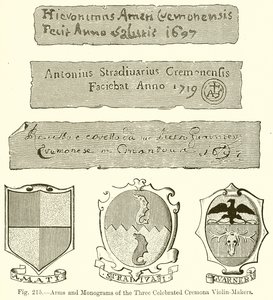 Hieronimus Amati Cremonensis
Fecit Anno Salutis 1697
Antonius Stradiuarius Cremonensis
Faciebat Anno 1719
A S
revista e corretta da
Cremonese in Mantoua 169
AMATI
STRADIVARI
GUARNERI
Fig. 215.—Arms and Monograms of the Three Celebrated Cremona Violin-Makers.